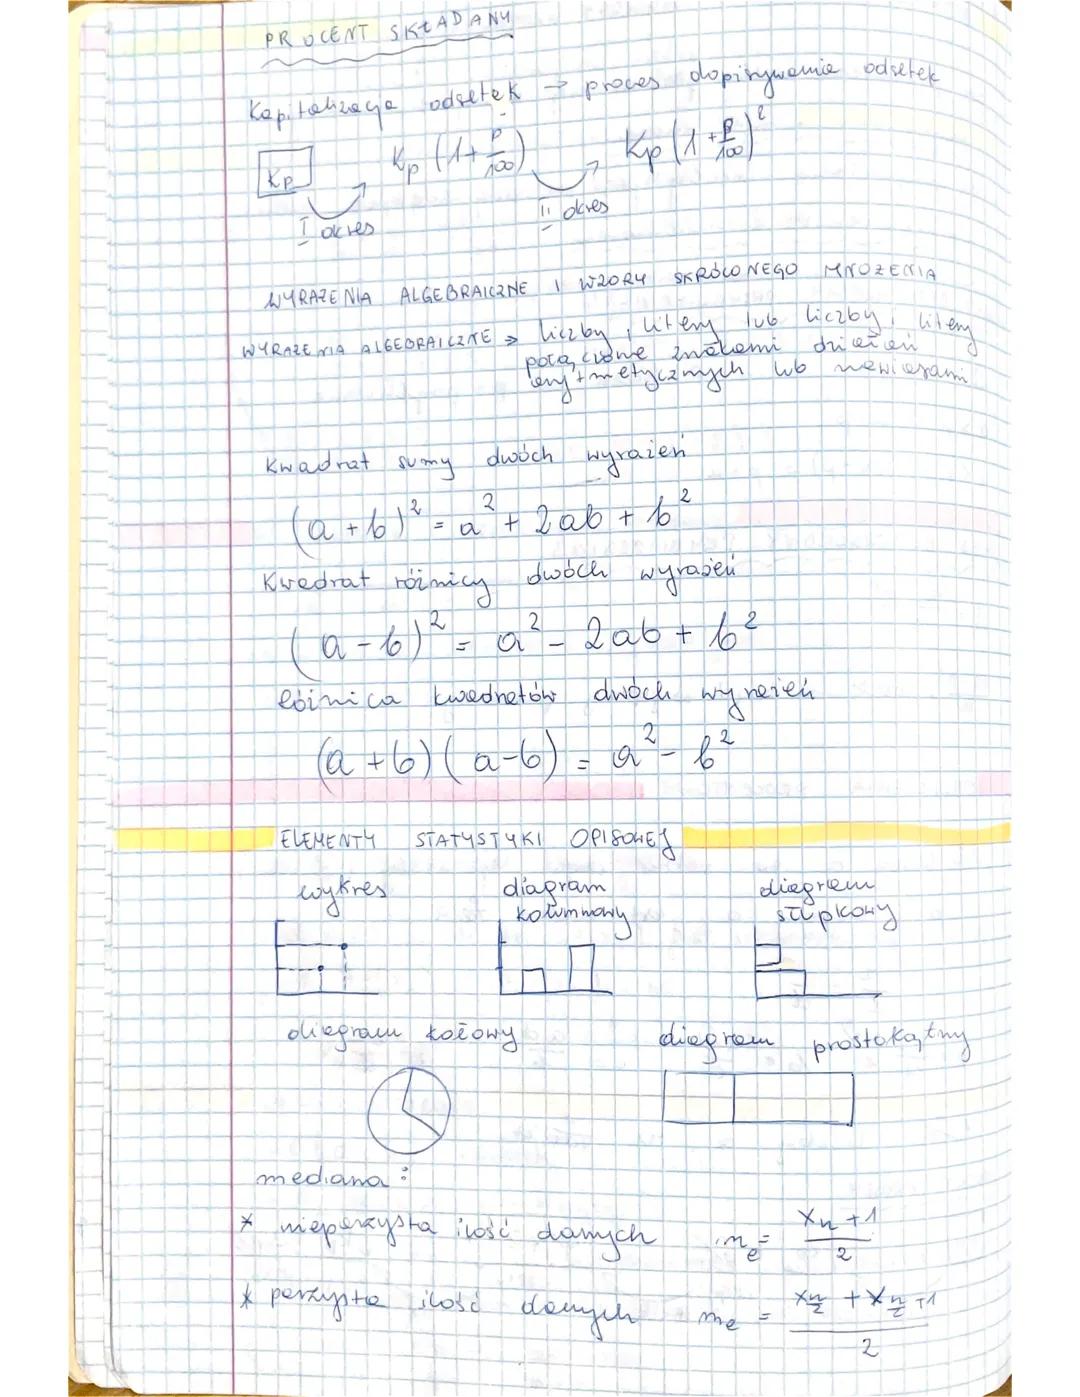 PROCENT SKŁADANY
Kapitalizacja odsetek → proces dopisywania odsetek
Kp Kp (1+p/100) Kp (1+p/100)²
I okres II okres
WYRAŻENIA ALGEBRAICZNE I WZORY SKRÓCONEGO MNOŻENIA
WYRAŻENIA ALGEBRAICZNE => liczby, litery lub liczby i litery
połączone znakami działań
arytmetycznych lub nawiasami
Kwadrat sumy dwóch wyrażeń
(a+b)² = a² + 2ab + b²
Kwadrat różnicy dwóch wyrażeń
(a-b)² = a² - 2ab + b²
Różnica kwadratów dwóch wyrażeń
(a+b)(a-b) = a² - b²
ELEMENTY STATYSTYKI OPISOWEJ
wykres diagram diagram
kolumnowy słupkowy
diagram kołowy diagram prostokątny
mediana:
* nieparzysta ilość danych me = xn+1/2
* parzysta ilość danych me = (xn/2 + xn/2+1)/2